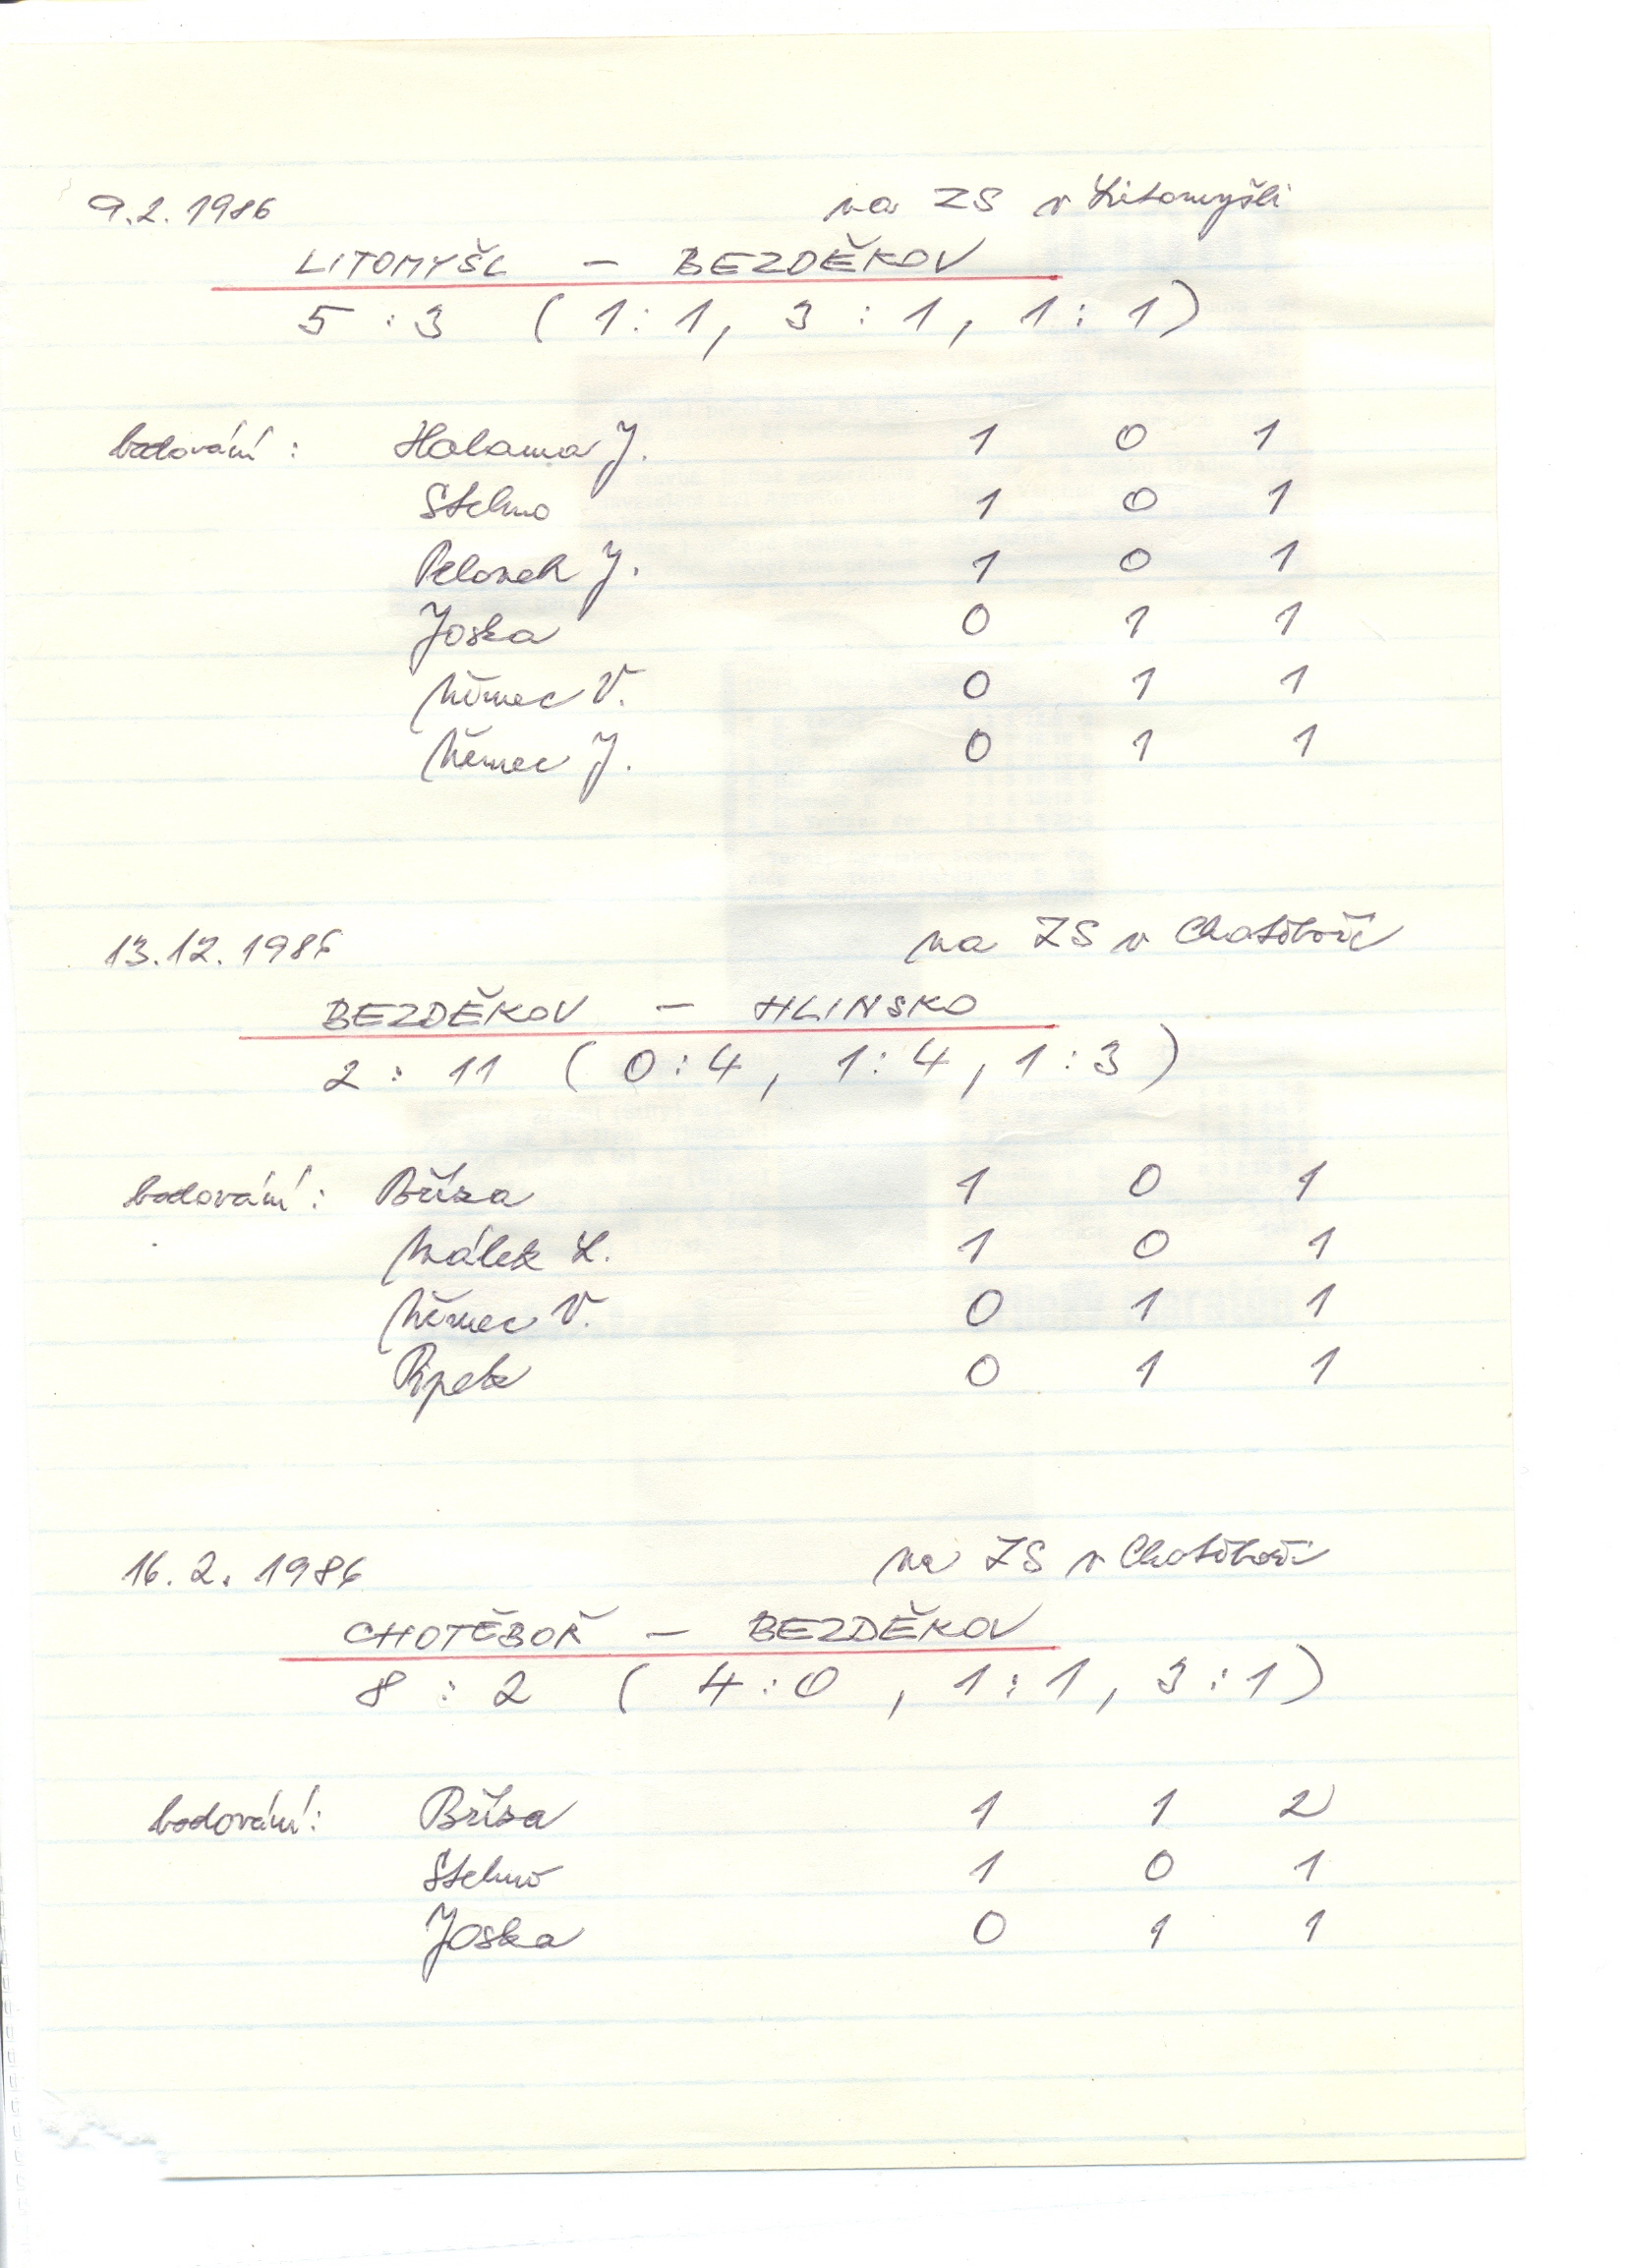 9.2.1986 na ZS v Litomyšli
LITOMYŠL – BEZDĚKOV
5 : 3 ( 1 : 1, 3 : 1, 1 : 1 )
bodování : Halama J. 1 0 1
Stehno 1 0 1
J. 1 0 1
Joska 0 1 1
Němec V. 0 1 1
Němec J. 0 1 1
13.12.1986 na ZS v Chotěboři
BEZDĚKOV – HLINSKO
2 : 11 ( 0 : 4, 1 : 4, 1 : 3 )
bodování : Bříza 1 0 1
Málek L. 1 0 1
Němec V. 0 1 1
Pipek 0 1 1
16.2.1986 na ZS v Chotěboři
CHOTĚBOŘ – BEZDĚKOV
8 : 2 ( 4 : 0, 1 : 1, 3 : 1 )
bodování : Bříza 1 1 2
Stehno 1 0 1
Joska 0 1 1